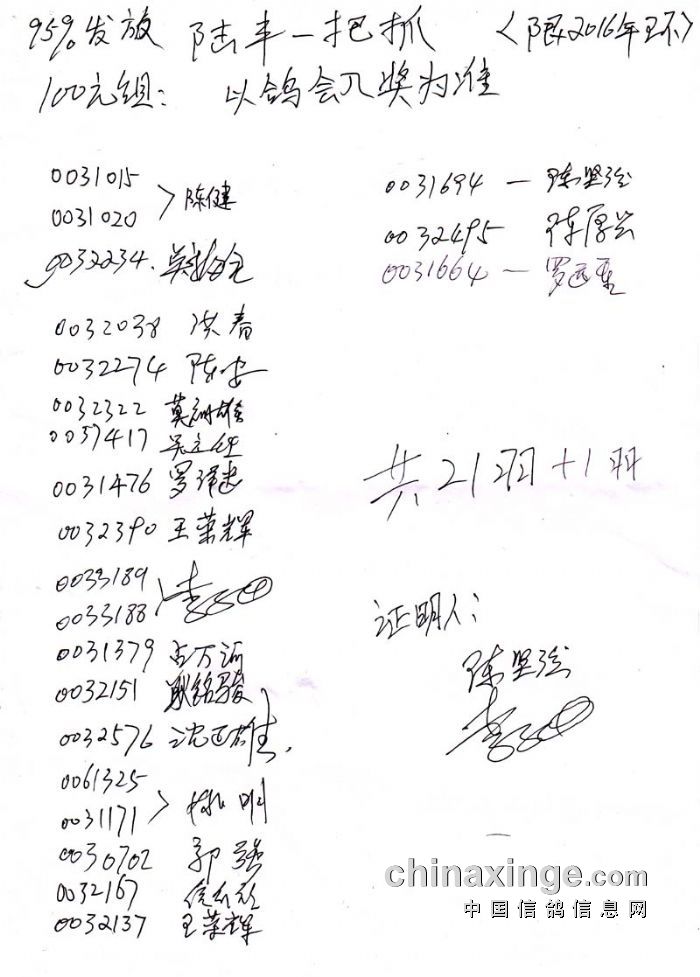 95%发放 陆丰一把抓 〈限2016年环〉
100元组： 以鸽会入奖为准
0031015
0031020 > 陈健
0032234. 吴
0032038 洪春
0032274 陈安
0032322 莫雄
0037417 吴
0031476 罗泽忠
0032390 王荣辉
0033189
0033188 > 李
0031379 占万
0032151 耿铭骏
0032576 沈西雄.
0061325
0031171 >
0030702 郭强
0032167
0032137 王荣辉
0031694 — 陈坚强
0032495 陈厚兴
0031664 — 罗
共21羽+1羽
证明人：
陈坚强
李
chinaxinge.com
中国信鸽信息网